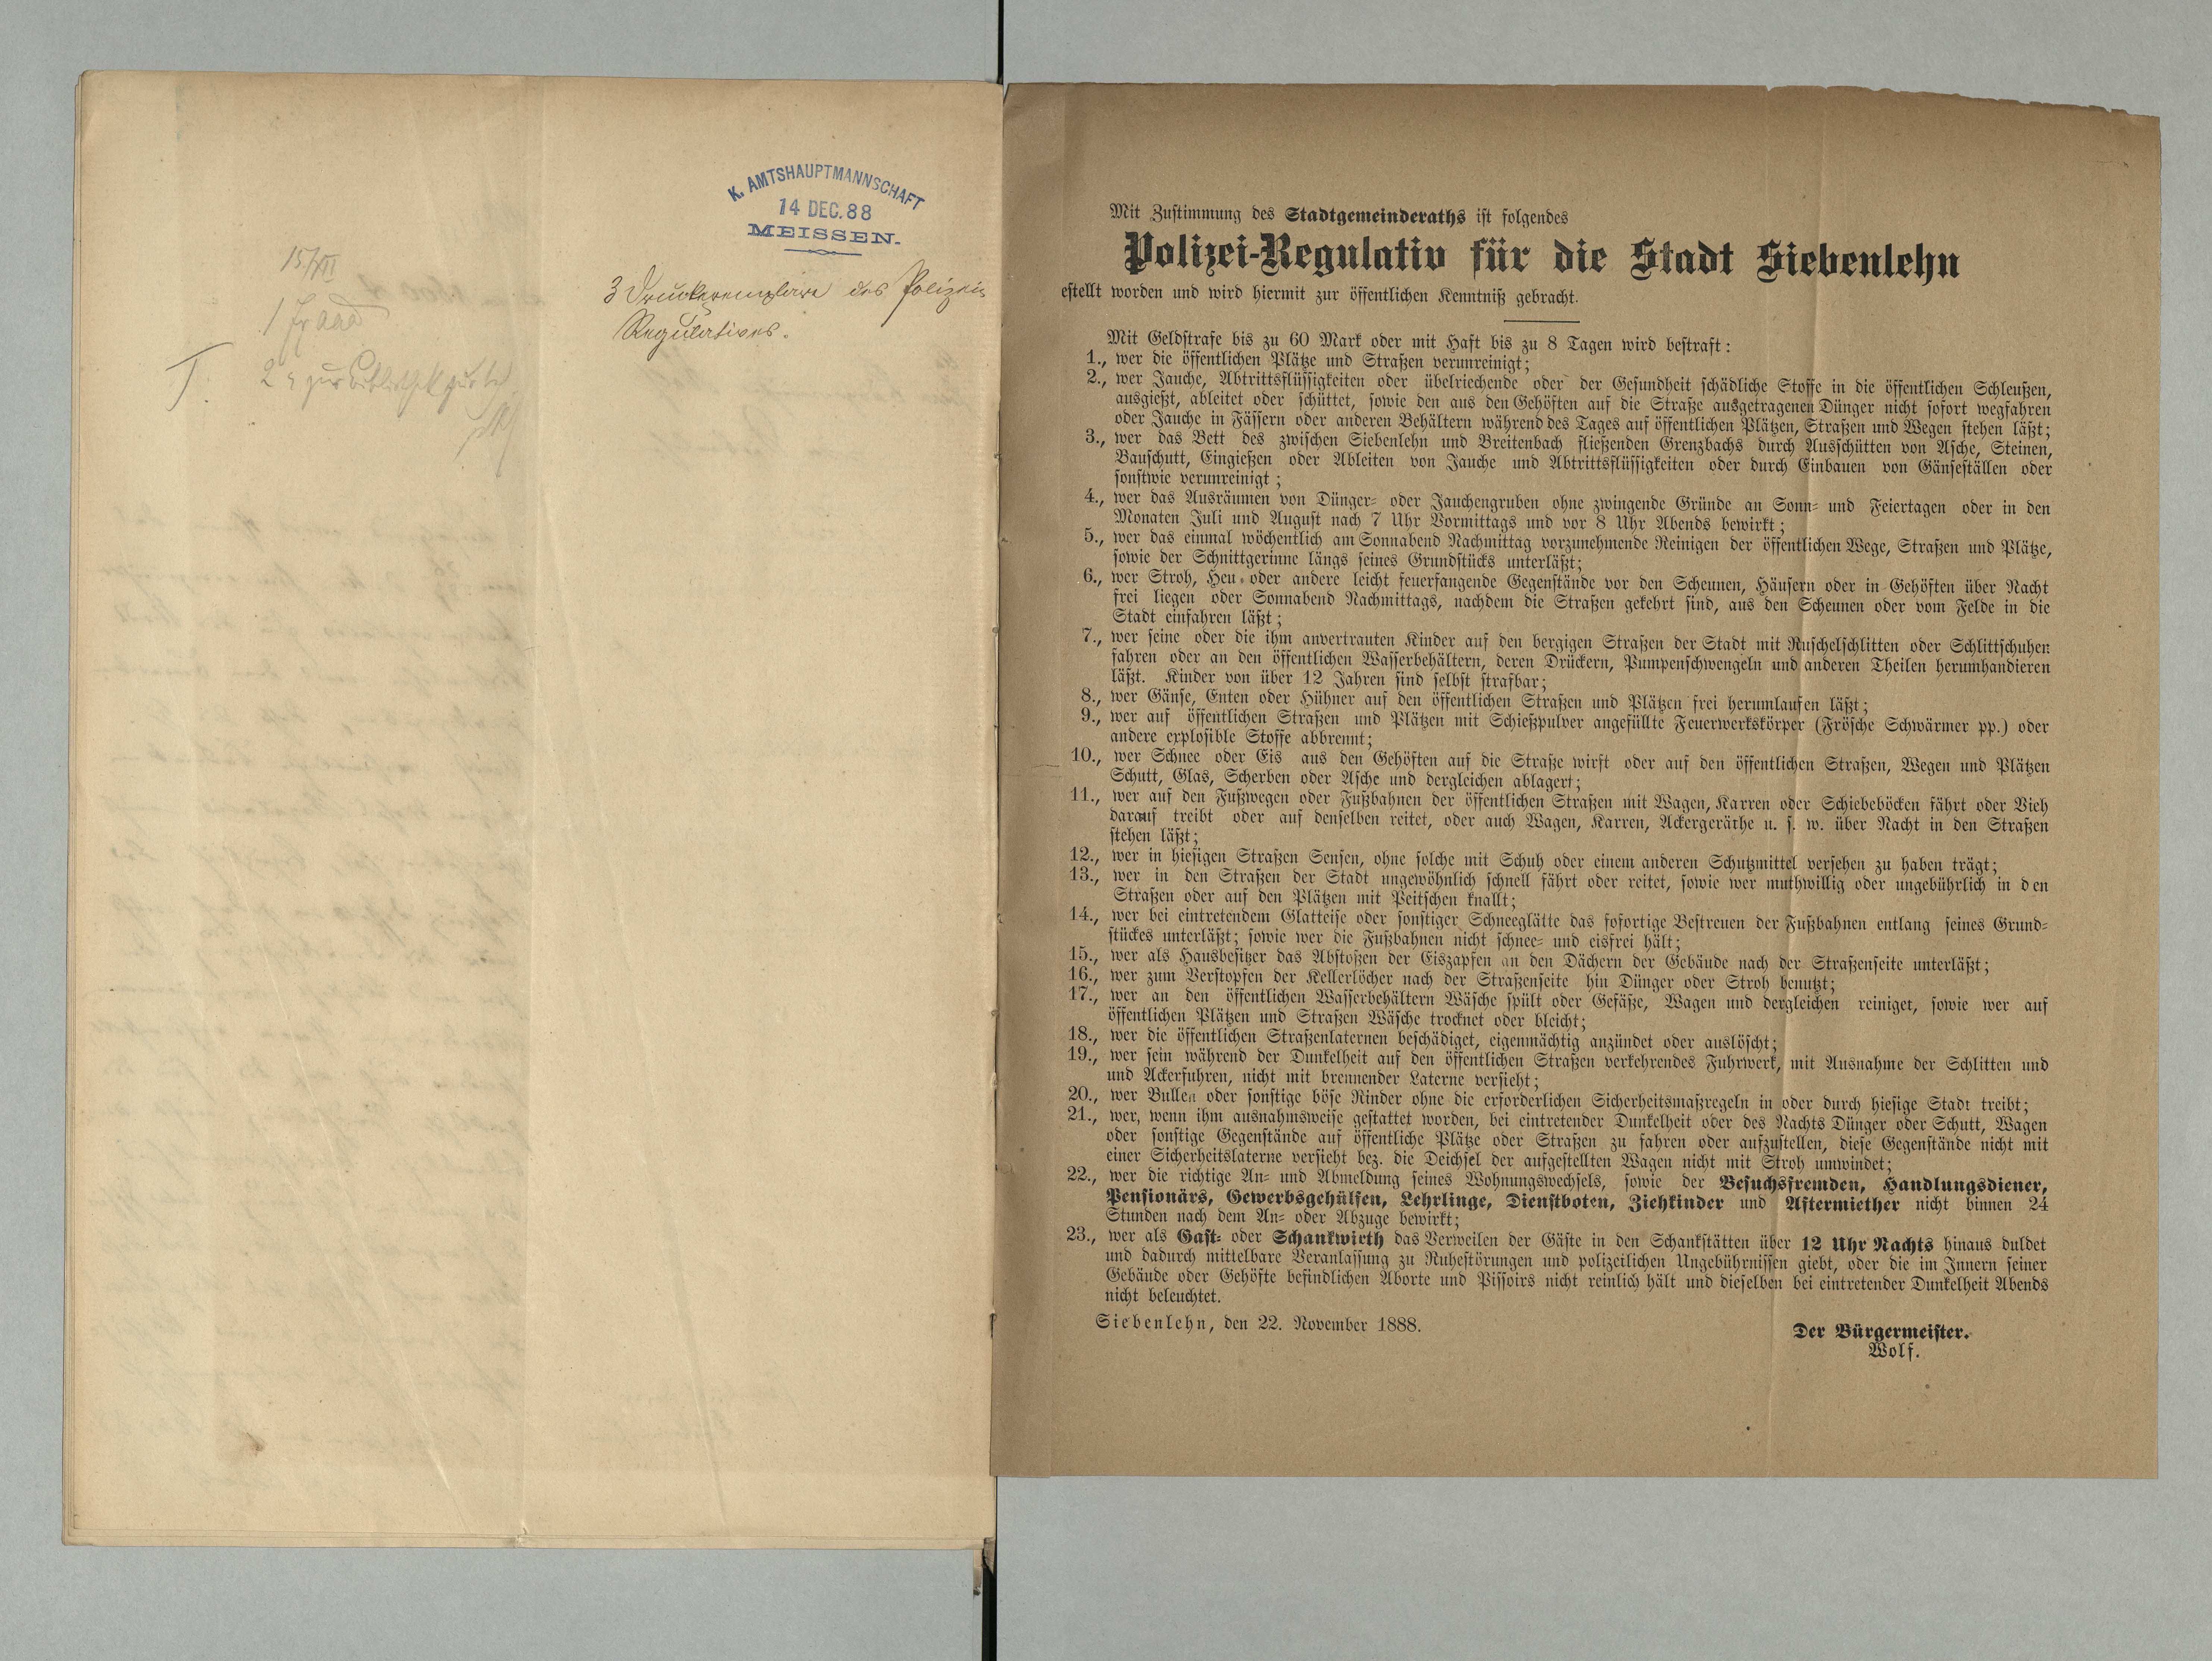 K. AMTSHAUPTMANNSCHAFT
14 DEC. 88
MEISSEN.
15/XII
3 Druckexemplare des Polizei-
Regulatives.
Mit Zustimmung des Stadtgemeinderaths ist folgendes
Polizei-Regulativ für die Stadt Siebenlehn
estellt worden und wird hiermit zur öffentlichen Kenntniß gebracht.
Mit Geldstrafe bis zu 60 Mark oder mit Haft bis zu 8 Tagen wird bestraft:
1., wer die öffentlichen Plätze und Straßen verunreinigt;
2., wer Jauche, Abtrittsflüssigkeiten oder übelriechende oder der Gesundheit schädliche Stoffe in die öffentlichen Schleußen,
ausgießt, ableitet oder schüttet, sowie den aus den Gehöften auf die Straße ausgetragenen Dünger nicht sofort wegfahren
oder Jauche in Fässern oder anderen Behältern während des Tages auf öffentlichen Plätzen, Straßen und Wegen stehen läßt;
3., wer das Bett des zwischen Siebenlehn und Breitenbach fließenden Grenzbachs durch Ausschütten von Asche, Steinen,
Bauschutt, Eingießen oder Ableiten von Jauche und Abtrittsflüssigkeiten oder durch Einbauen von Gänseställen oder
sonstwie verunreinigt;
4., wer das Ausräumen von Dünger- oder Jauchengruben ohne zwingende Gründe an Sonn- und Feiertagen oder in den
Monaten Juli und August nach 7 Uhr Vormittags und vor 8 Uhr Abends bewirkt;
5., wer das einmal wöchentlich am Sonnabend Nachmittag vorzunehmende Reinigen der öffentlichen Wege, Straßen und Plätze,
sowie der Schnittgerinne längs seines Grundstücks unterläßt;
6., wer Stroh, Heu- oder andere leicht feuerfangende Gegenstände vor den Scheunen, Häusern oder in Gehöften über Nacht
frei liegen oder Sonnabend Nachmittags, nachdem die Straßen gekehrt sind, aus den Scheunen oder vom Felde in die
Stadt einfahren läßt;
7., wer seine oder die ihm anvertrauten Kinder auf den bergigen Straßen der Stadt mit Ruschelschlitten oder Schlittschuhen
fahren oder an den öffentlichen Wasserbehältern, deren Drückern, Pumpenschwengeln und anderen Theilen herumhandieren
läßt. Kinder von über 12 Jahren sind selbst strafbar;
8., wer Gänse, Enten oder Hühner auf den öffentlichen Straßen und Plätzen frei herumlaufen läßt;
9., wer auf öffentlichen Straßen und Plätzen mit Schießpulver angefüllte Feuerwerkskörper (Frösche Schwärmer pp.) oder
andere explosible Stoffe abbrennt;
10., wer Schnee oder Eis aus den Gehöften auf die Straße wirft oder auf den öffentlichen Straßen, Wegen und Plätzen
Schutt, Glas, Scherben oder Asche und dergleichen ablagert;
11., wer auf den Fußwegen oder Fußbahnen der öffentlichen Straßen mit Wagen, Karren oder Schiebeböcken fährt oder Vieh
darauf treibt oder auf denselben reitet, oder auch Wagen, Karren, Ackergeräthe u. s. w. über Nacht in den Straßen
stehen läßt;
12., wer in hiesigen Straßen Sensen, ohne solche mit Schuh oder einem anderen Schutzmittel versehen zu haben trägt;
13., wer in den Straßen der Stadt ungewöhnlich schnell fährt oder reitet, sowie wer muthwillig oder ungebührlich in den
Straßen oder auf den Plätzen mit Peitschen knallt;
14., wer bei eintretendem Glatteise oder sonstiger Schneeglätte das sofortige Bestreuen der Fußbahnen entlang seines Grund-
stückes unterläßt; sowie wer die Fußbahnen nicht schnee- und eisfrei hält;
15., wer als Hausbesitzer das Abstoßen der Eiszapfen an den Dächern der Gebäude nach der Straßenseite unterläßt;
16., wer zum Verstopfen der Kellerlöcher nach der Straßenseite hin Dünger oder Stroh benutzt;
17., wer an den öffentlichen Wasserbehältern Wäsche spült oder Gefäße, Wagen und dergleichen reiniget, sowie wer auf
öffentlichen Plätzen und Straßen Wäsche trocknet oder bleicht;
18., wer die öffentlichen Straßenlaternen beschädiget, eigenmächtig anzündet oder auslöscht;
19., wer sein während der Dunkelheit auf den öffentlichen Straßen verkehrendes Fuhrwerk, mit Ausnahme der Schlitten und
und Ackerfuhren, nicht mit brennender Laterne versieht;
20., wer Bullen oder sonstige böse Rinder ohne die erforderlichen Sicherheitsmaßregeln in oder durch hiesige Stadt treibt;
21., wer, wenn ihm ausnahmsweise gestattet worden, bei eintretender Dunkelheit oder des Nachts Dünger oder Schutt, Wagen
oder sonstige Gegenstände auf öffentliche Plätze oder Straßen zu fahren oder aufzustellen, diese Gegenstände nicht mit
einer Sicherheitslaterne versieht bez. die Deichsel der aufgestellten Wagen nicht mit Stroh umwindet;
22., wer die richtige An- und Abmeldung seines Wohnungswechsels, sowie der Besuchsfremden, Handlungsdiener,
Pensionärs, Gewerbsgehülfen, Lehrlinge, Dienstboten, Ziehkinder und Aftermiether nicht binnen 24
Stunden nach dem An- oder Abzuge bewirkt;
23., wer als Gast- oder Schankwirth das Verweilen der Gäste in den Schankstätten über 12 Uhr Nachts hinaus duldet
und dadurch mittelbare Veranlassung zu Ruhestörungen und polizeilichen Ungebührnissen giebt, oder die im Innern seiner
Gebäude oder Gehöfte befindlichen Aborte und Pissoirs nicht reinlich hält und dieselben bei eintretender Dunkelheit Abends
nicht beleuchtet.
Siebenlehn, den 22. November 1888.
Der Bürgermeister.
Wolf.